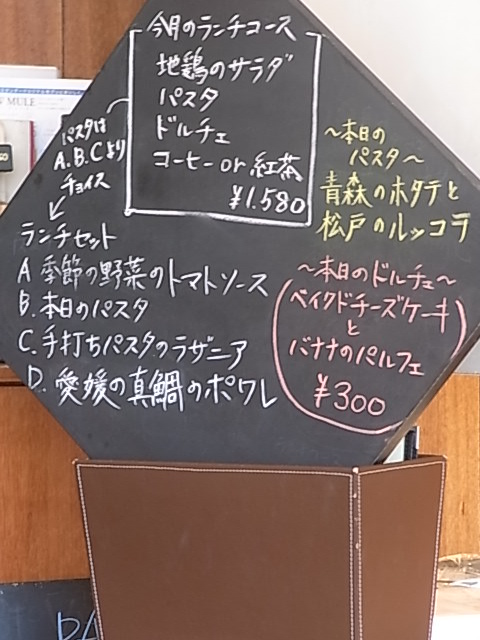 今月のランチコース
地鶏のサラダ
パスタ
ドルチェ
コーヒー or 紅茶
¥1.580
パスタは
A.B.Cより
チョイス
〜本日の
パスタ〜
青森のホタテと
松戸のルッコラ
ランチセット
A 季節の野菜のトマトソース
B. 本日のパスタ
C. 手打ちパスタのラザニア
D. 愛媛の真鯛のポワレ
〜本日のドルチェ〜
ベイクドチーズケーキ
と
バナナのパルフェ
¥300
MULE